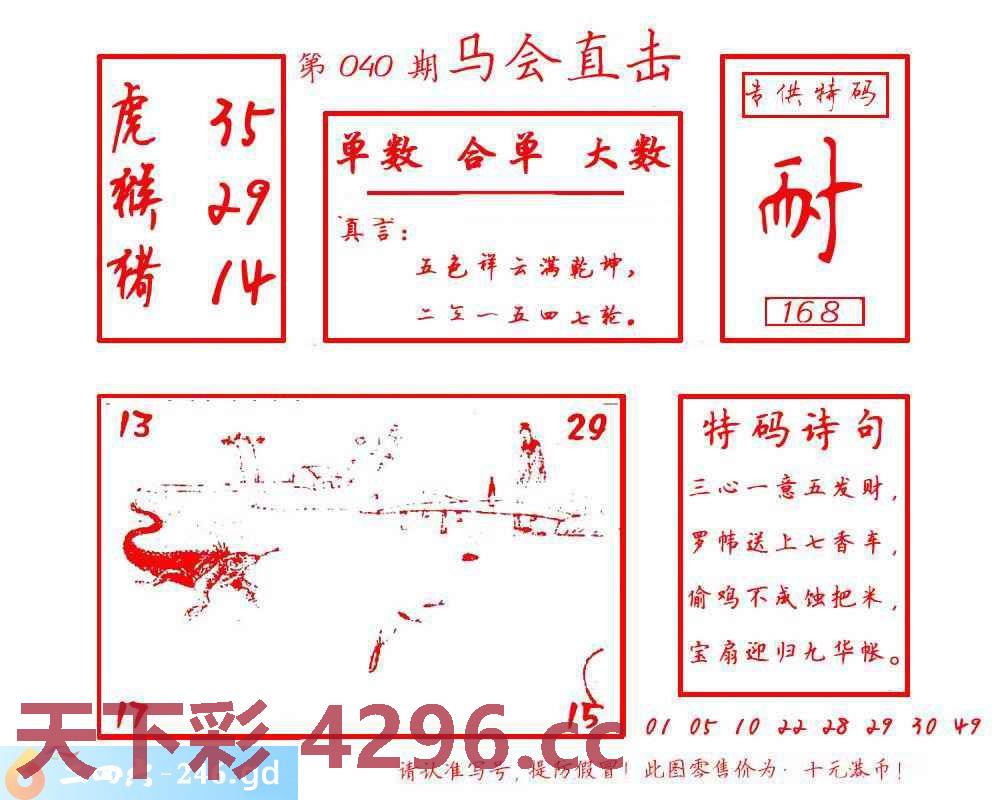 第 040 期 马会直击
虎 35
猴 29
猪 14
单数 合单 大数
真言：
五色祥云满乾坤，
二三一五四七轮。
专供特码
耐
168
13
29
17
15
特码诗句
三心一意五发财，
罗帏送上七香车，
偷鸡不成蚀把米，
宝扇迎归九华帐。
01 05 10 22 28 29 30 49
天下彩 4296.cc
-246.gd
请认准写号，提防假冒！此图零售价为：十元港币！